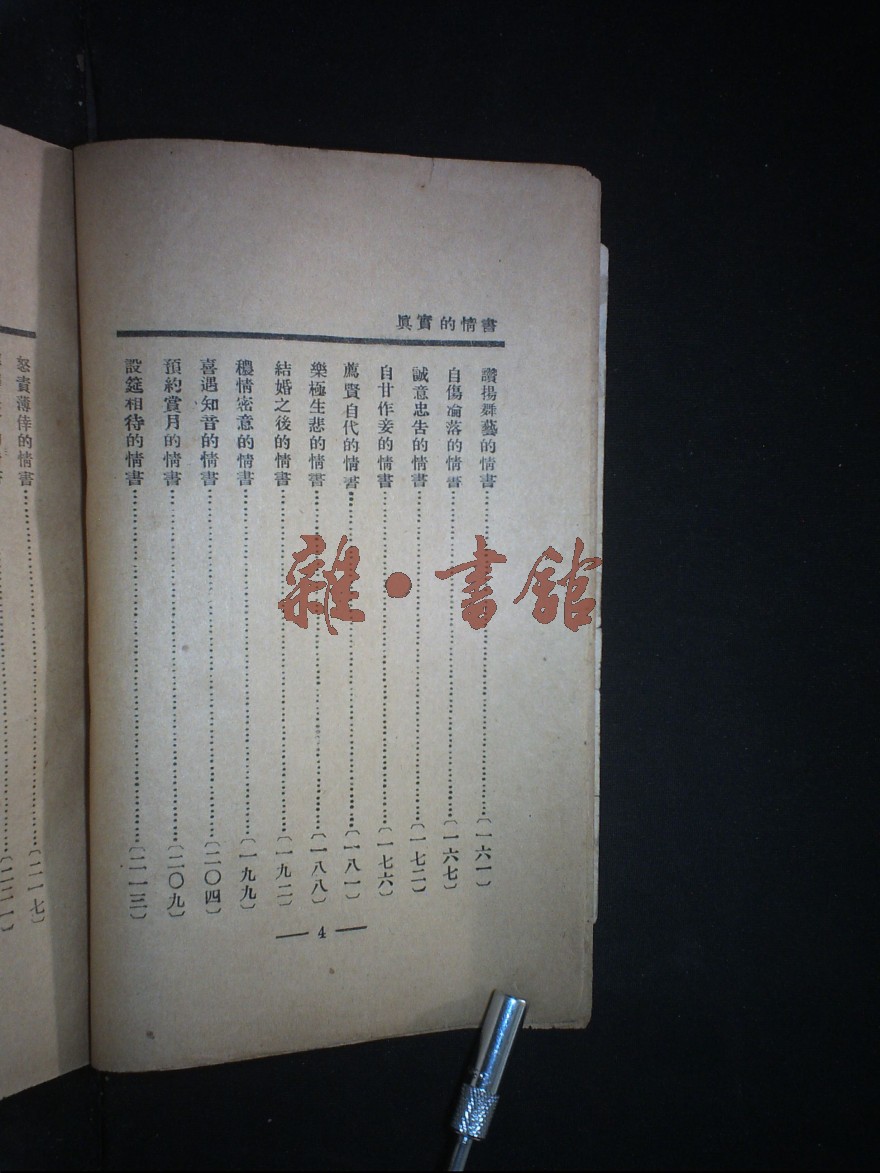 眞實的情書
讚揚舞藝的情書……〔一六一〕
自傷淪落的情書……〔一六七〕
誠意忠告的情書……〔一七二〕
自甘作妾的情書……〔一七六〕
薦賢自代的情書……〔一八一〕
樂極生悲的情書……〔一八八〕
結婚之後的情書……〔一九二〕
穠情密意的情書……〔一九九〕
喜遇知音的情書……〔二〇四〕
預約賞月的情書……〔二〇九〕
設筵相待的情書……〔二一三〕
— 4 —
怒責薄倖的情書……〔二一七〕
〔二二一〕
雜·書館